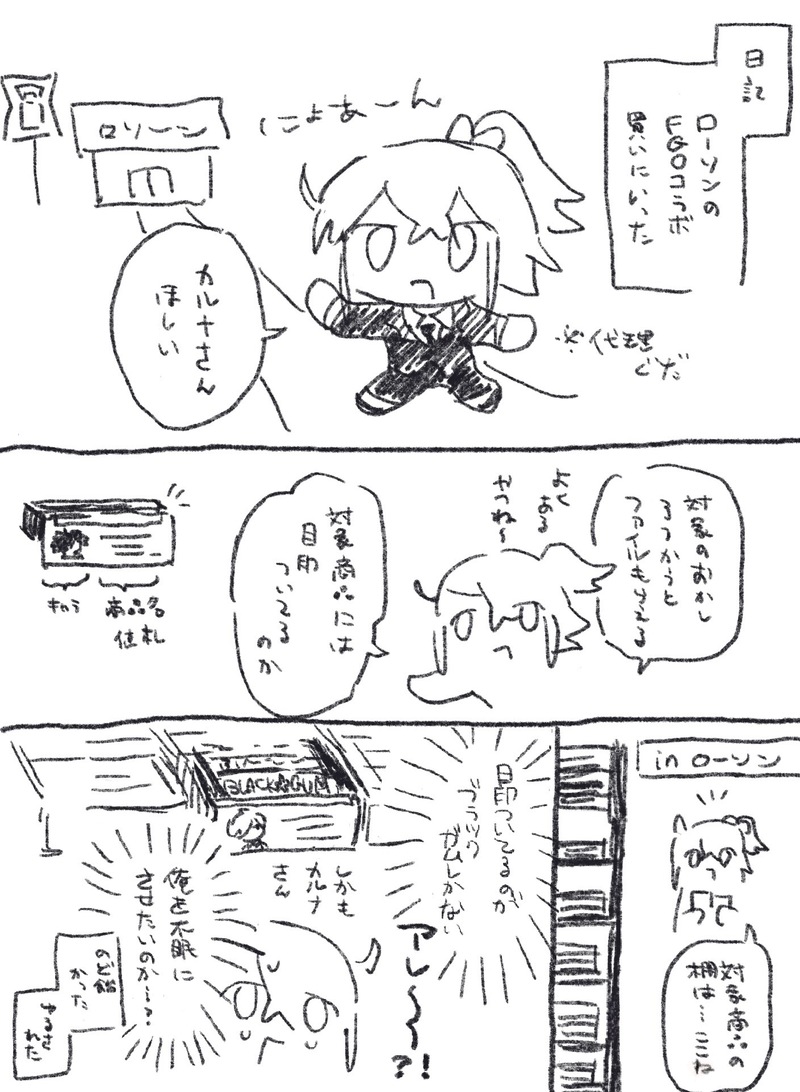 日記
ローソンの
FGOコラボ
買いにいった
にょあーん
ロソーン
カルナさん
ほしい
※代理
ぐだ
対象のおかし
3つかうと
ファイルもらえる
よく
ある
やつね〜
対象商品には
目印
ついてる
のか
キャラ
商品名
値札
in ローソン
対象商品の
棚は…ここね
目印ついてるのが
ブラック
ガムしかない
BLACK GUM
しかも
カルナ
さん
アレ〜〜〜?!
俺を不眠に
させたいのか〜?
のど飴
かった
ゆるさ
れた